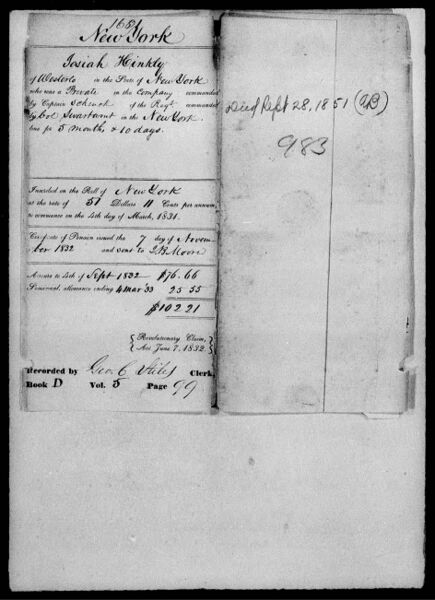 1681
New York
Josiah Hinkly
of Westerlo in the State of New York
who was a Private in the Company commanded
by Captain Schenck of the Regt commanded
by Col Swartwout in the New York
line for 5 months & 10 days.
Inscribed on the Roll of New York
at the rate of 51 Dollars 11 Cents per annum,
to commence on the 4th day of March, 1831.
Certificate of Pension issued the 7 day of Novem
ber 1832 and sent to J B Moore
Arrears to 4th of Sept 1832 $76.66
Semi-anl. allowance ending 4 Mar 33 25 55
$102 21
{ Revolutionary Claim, }
{ Act June 7, 1832. }
Recorded by Geo. C. Stiles Clerk,
Book D Vol. 5 Page 99
Died Sept 28, 1851
983